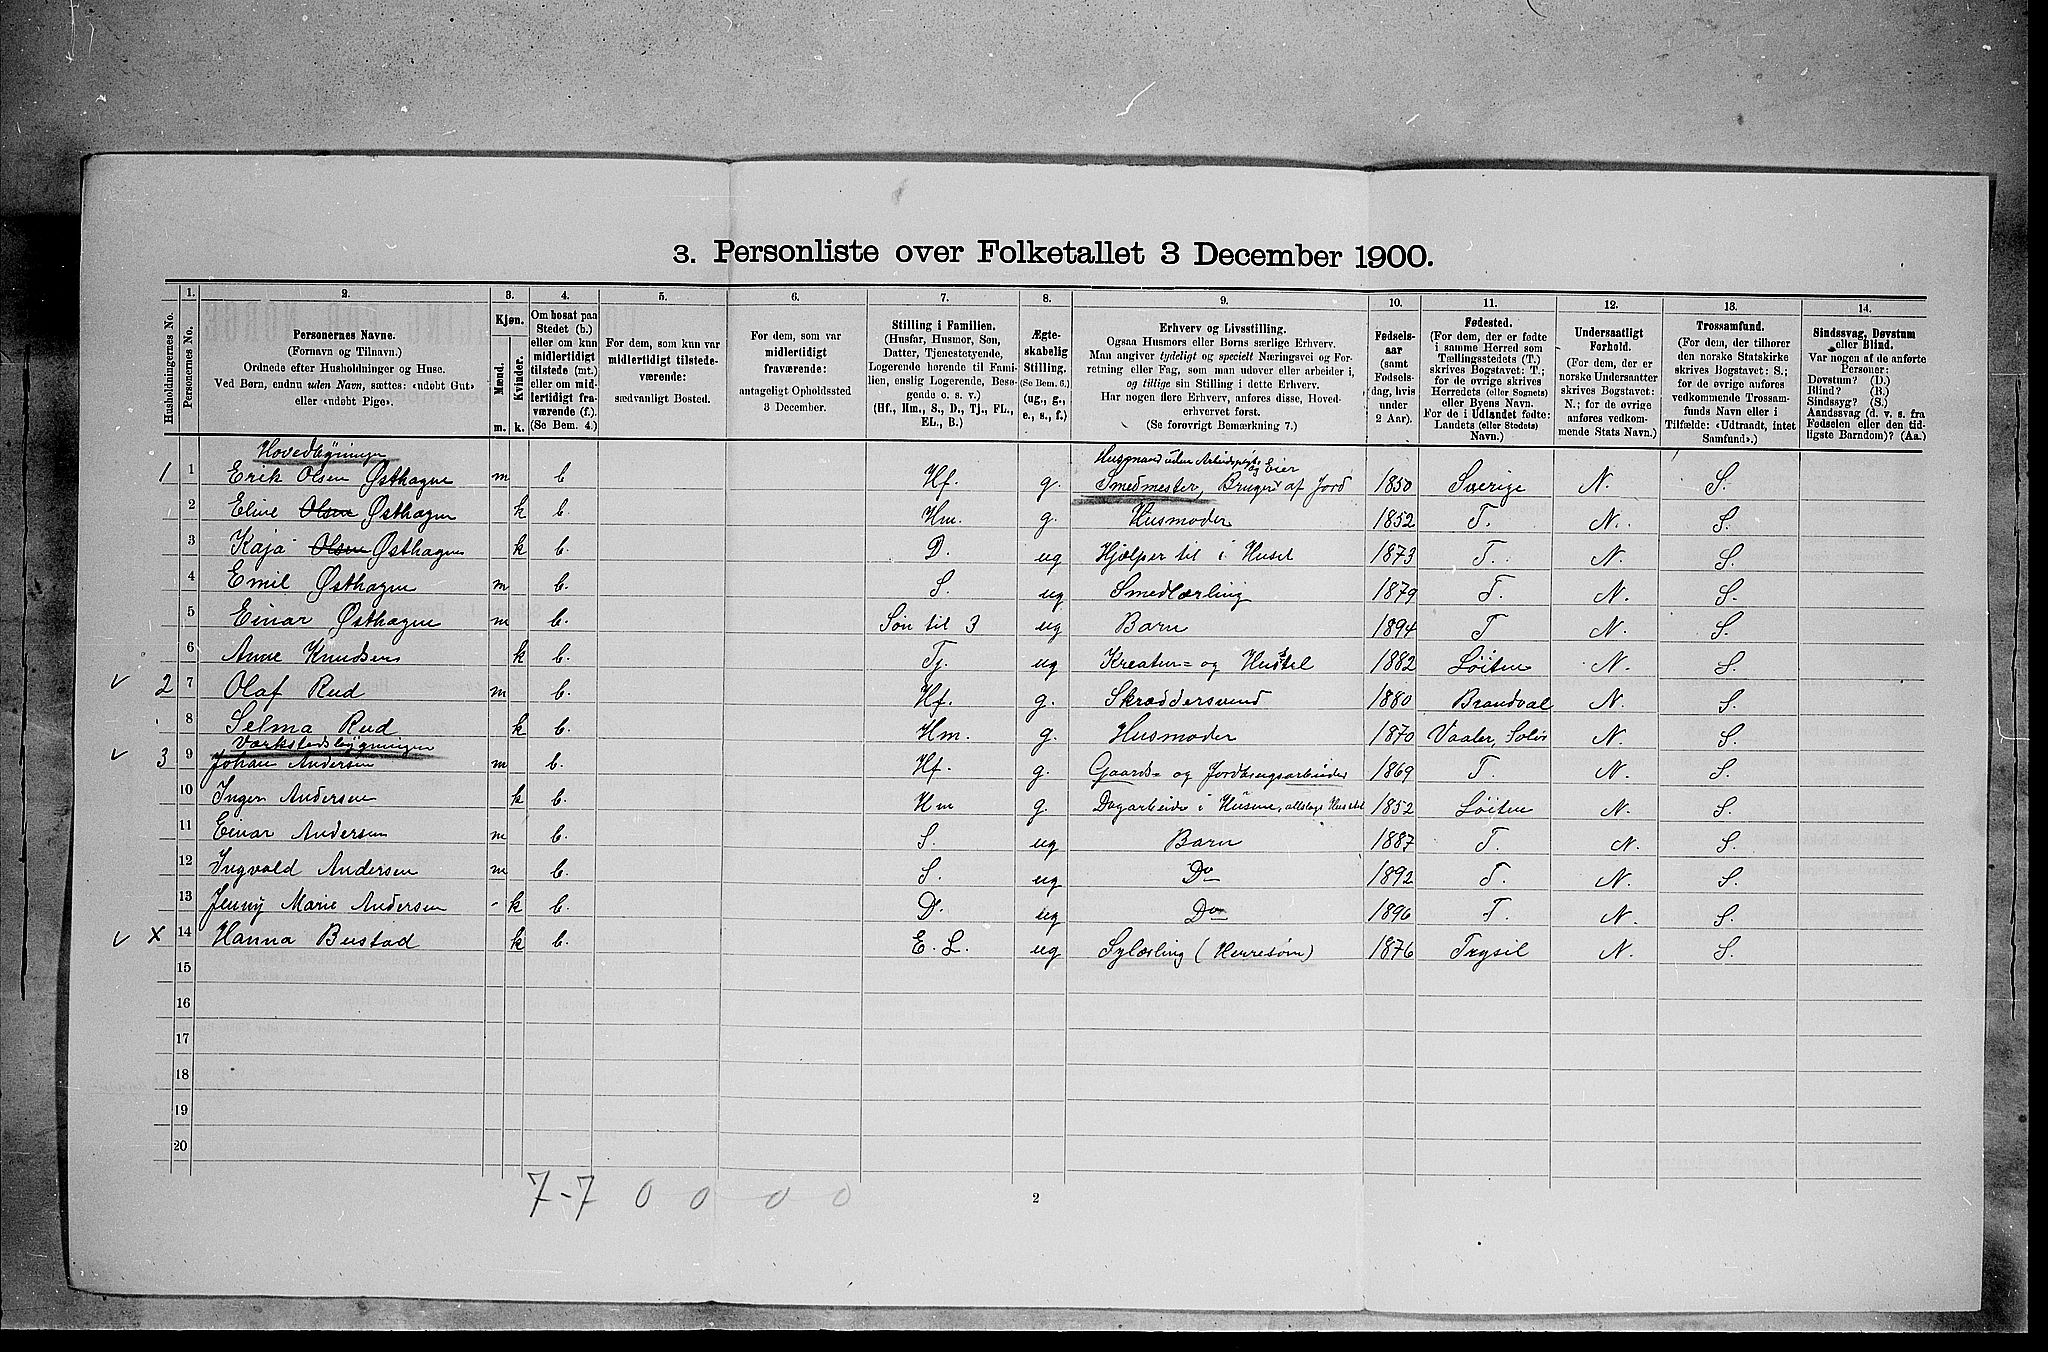 3. Personliste over Folketallet 3 December 1900.
1. 2. 3. 4. 5. 6. 7. 8. 9. 10. 11. 12. 13. 14.
Husholdningernes No.
Personernes No.
Personernes Navne.
(Fornavn og Tilnavn.)
Ordnede efter Husholdninger og Huse.
Ved Børn, endnu uden Navn, sættes: «udøbt Gut»
eller «udøbt Pige».
Kjøn.
Mænd.
Kvinder.
m. k.
Om bosat paa
Stedet (b.)
eller om kun
midlertidigt
tilstede (mt.)
eller om mid-
lertidigt fra-
værende (f.).
(Se Bem. 4.)
For dem, som kun var
midlertidigt tilstede-
værende:
sædvanligt Bosted.
For dem, som var
midlertidigt
fraværende:
antageligt Opholdssted
3 December.
Stilling i Familien.
(Husfar, Husmor, Søn,
Datter, Tjenestetyende,
Logerende hørende til Fami-
lien, enslig Logerende, Besø-
gende o. s. v.)
(Hf., Hm., S., D., Tj., FL.,
EL., B.)
Ægte-
skabelig
Stilling.
(Se Bem. 6.)
(ug., g.,
e., s., f.)
Erhverv og Livsstilling.
Ogsaa Husmors eller Børns særlige Erhverv.
Man angiver tydeligt og specielt Næringsvei og For-
retning eller Fag, som man udøver eller arbeider i,
og tillige sin Stilling i dette Erhverv.
Har nogen flere Erhverv, anføres disse, Hoved-
erhvervet først.
(Se forøvrigt Bemærkning 7.)
Fødsels-
aar
(samt
Fødsels-
dag, hvis
under
2 Aar).
Fødested.
(For dem, der er fødte
i samme Herred som
Tællingsstedets (T.)
skrives Bogstavet: T.;
for de øvrige skrives
Herredets (eller Sognets)
eller Byens Navn.
For de i Udlandet fødte:
Landets (eller Stedets)
Navn.)
Undersaatligt
Forhold.
(For dem, der er
norske Undersaatter
skrives Bogstavet:
N.; for de øvrige
anføres vedkom-
mende Stats Navn.)
Trossamfund.
(For dem, der tilhører
den norske Statskirke
skrives Bogstavet: S.;
for de øvrige anføres
vedkommende Trossam-
funds Navn eller i
Tilfælde: «Udtraadt, intet
Samfund».)
Sindssvag, Døvstum
eller Blind.
Var nogen af de anførte
Personer:
Døvstum? (D.)
Blind? (B.)
Sindssyg? (S.)
Aandssvag (d. v. s. fra
Fødselen eller den tid-
ligste Barndom)? (Aa.)
Hovedbygningen
Husmand uden Arbeidspligt og Eier
1 1 Erik Olsen Østhagen m b Hf. g. Smedmester, Bruger af Jord 1850 Sverige N. S.
2 Eline Olsen Østhagen k b. Hm. g. Husmoder 1852 T. N. S.
3 Kaja Olsen Østhagen k b. D. ug Hjælper til i Huset 1873 T. N. S.
4 Emil Østhagen m b. S. ug Smedlærling 1879 T. N. S.
5 Einar Østhagen m b. Søn til 3 ug Barn 1894 T N. S.
6 Anne Knudsen k b. Tj. ug Kreatur= og Husstel 1882 Löiten N. S.
2 7 Olaf Rud m b. Hf. g. Skræddersvend 1880 Brandval N. S.
8 Selma Rud k b. Hm. g. Husmoder 1870 Vaaler, Solør N. S.
Værkstedsbygningen
3 9 Johan Andersen m b. Hf. g. Gaards= og Jordbrugsarbeider 1869 T. N. S.
10 Inger Andersen k b. Hm g. Dagarbeide i Husene, alslags Husstel 1852 Löiten N. S.
11 Einar Andersen m b. S. ug Barn 1887 T. N. S.
12 Ingvald Andersen m b. S. ug Do 1892 T. N. S.
13 Jenny Marie Andersen - k b. D. ug Do 1896 T. N. S.
X 14 Hanna Bustad k b. E. L. ug Sylærling (Herresøm) 1876 Trysil N. S.
15
16
17
18
19
20
7-7 0 0 0 0
2